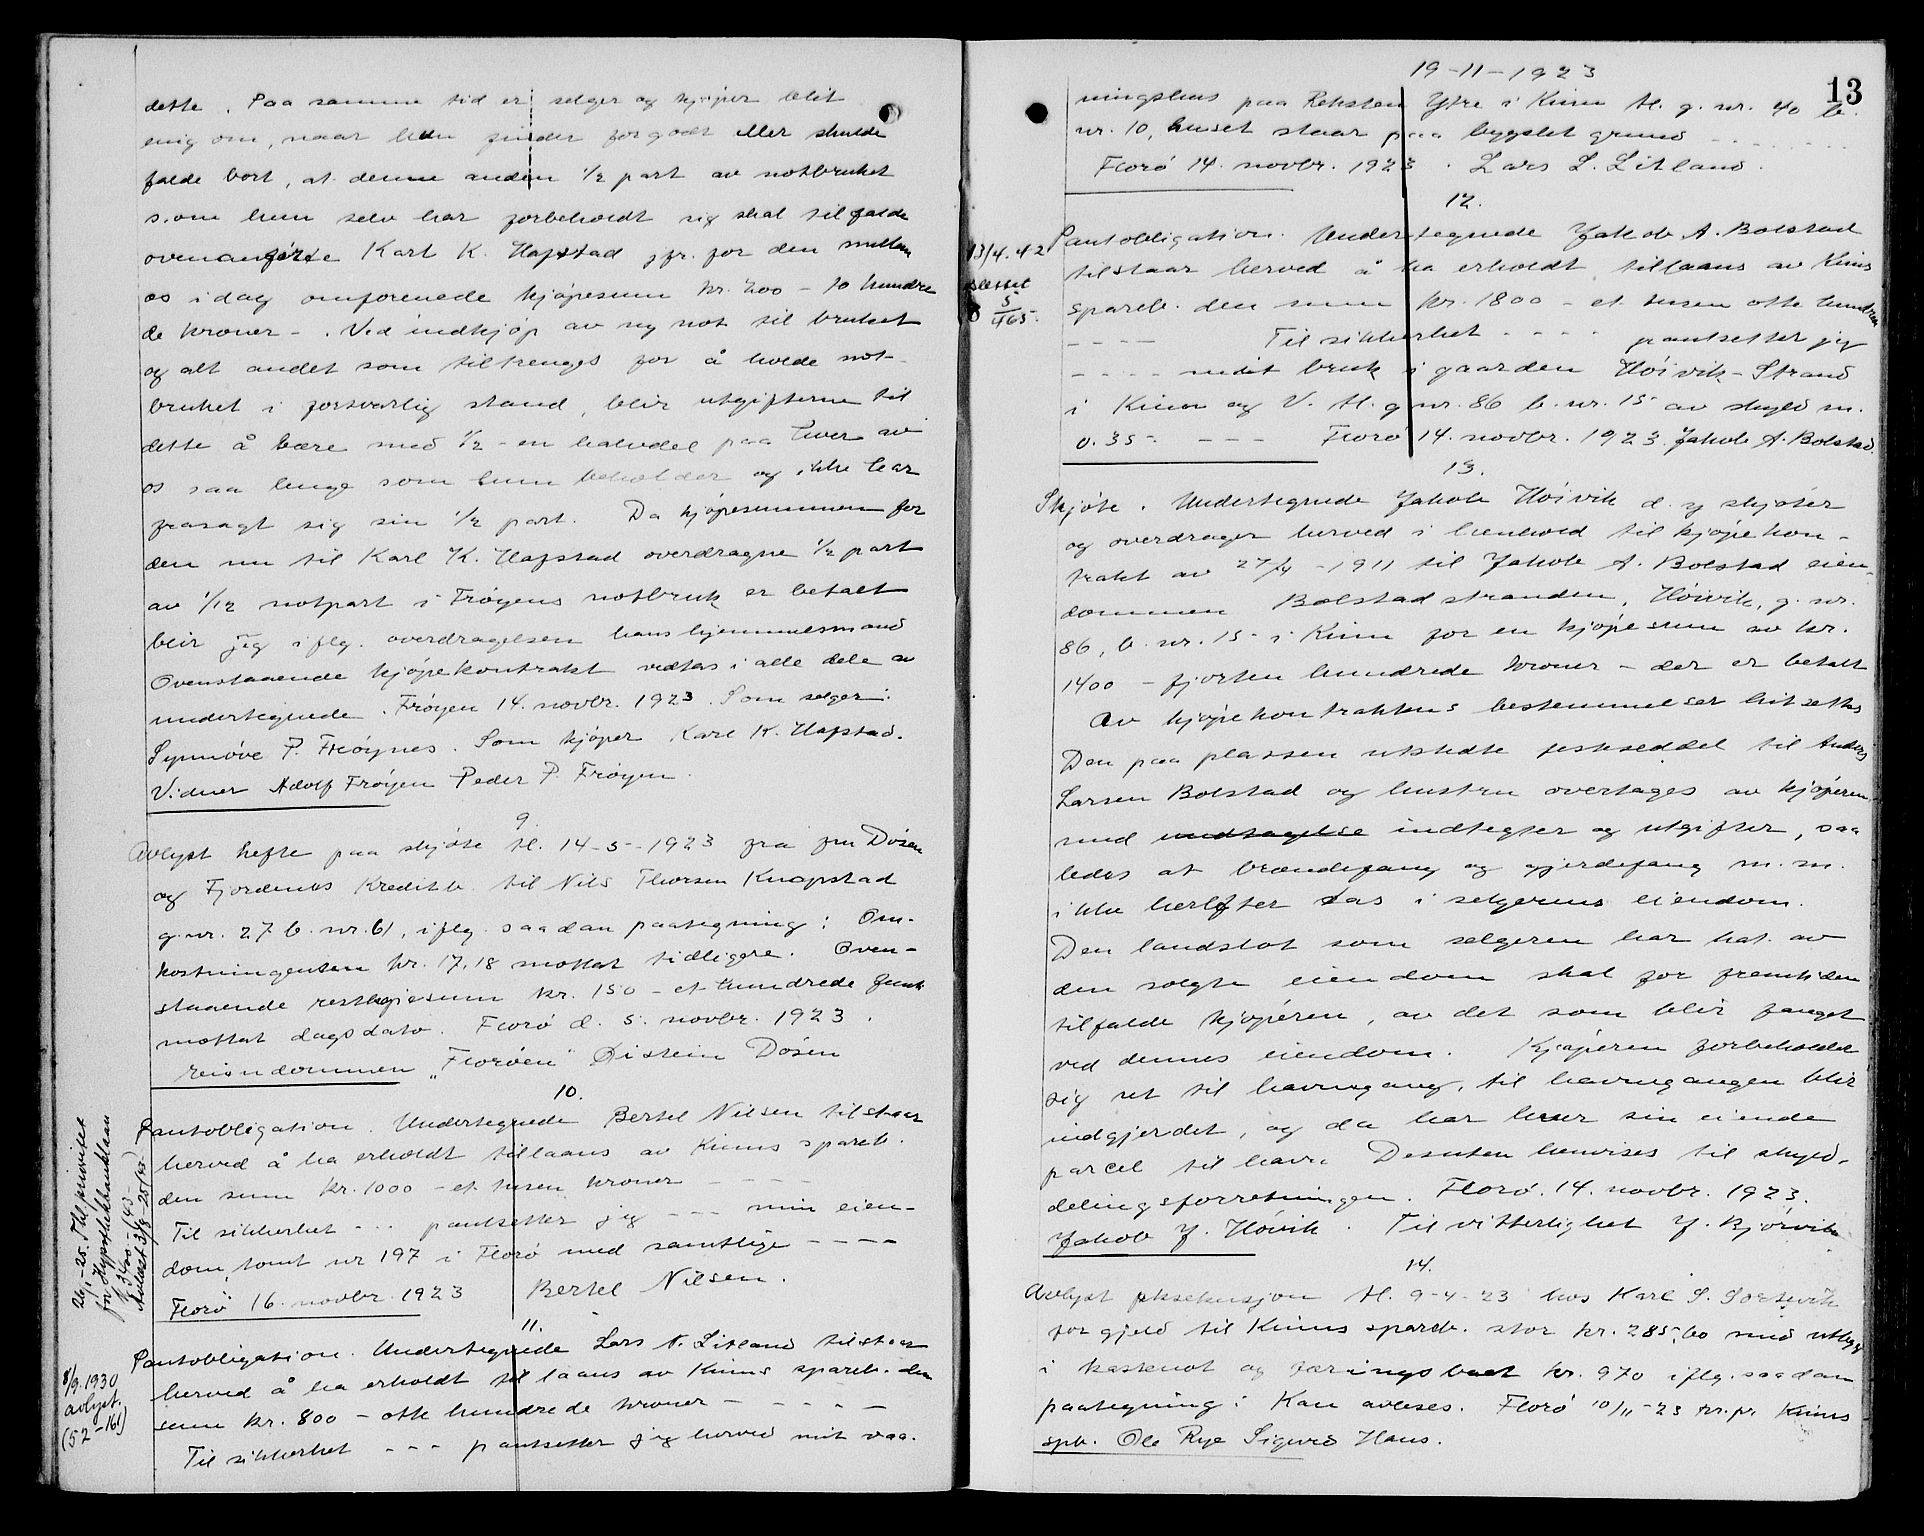 dette. Paa samme tid er selger og kjøper blit
enig om, naar hun finder forgodt eller skulde
falde bort, at denne anden 1/2 part av notbruket
som hun selv har forbeholdt sig skal tilfalde
ovenanførte Karl K. Hafstad jfr. for den mellem
os idag omforenede kjøpesum kr. 200 - to hundre
de kroner -. Ved indkjøp av ny not til bruket
og alt andet som tiltrenges for å holde not-
bruket i forsvarlig stand, blir utgifterne til
dette å bære med 1/2 - en halvdel paa hver av
os saa lenge som hun beholder og ikke har
frasagt sig sin 1/2 part. Da kjøpesummen for
den nu til Karl K. Hafstad overdragne 1/2 part
av 1/12 notpart i Frøyens notbruk er betalt
blir jeg iflg. overdragelsen hans hjemmelsmand
Ovenstaaende kjøpekontrakt vedtas i alle dele av
undertegnede. Frøyen 14. novbr. 1923. Som selger:
Synnøve P. Frøynes. Som kjøper Karl K. Hafstad.
Vidner Adolf Frøyen Peder P. Frøyen.
9.
Avlyst hefte paa skjøte tl. 14-5-1923 fra fru Døsen
og Fjordenes Kreditb. til Nils Thorsen Knapstad
g.nr. 27 b.nr. 61, iflg. saadan paategning: Om-
kostningenten kr. 17,18 mottat tidligere. Oven-
staaende restkjøpesum kr. 150 - et hundrede femti
mottat dags dato. Florø d. 5. novbr. 1923.
eiendommen "Florøen" Øistein Døsen
10.
Pantobligation. Undertegnede Bertel Nilsen tilstaar
herved å ha erholdt tillaans av Kinns spareb.
den sum kr. 1000 - et tusen kroner - - - -
Til sikkerhet - - - pantsetter jeg - - - min eien-
dom, tomt nr 197 i Florø med samtlige - - - -
Florø 16. novbr. 1923 Bertel Nilsen.
26/1-25. Thl. prioritet
for Hypotekbanklaan
f 3400 - (43-
Avlæst 3/8-25 (43-
11.
Pantobligation. Undertegnede Lars N. Litland tilstaar
herved å ha erholdt til laans av Kinns spareb. den
sum kr. 800 - otte hundrede kroner - - - - -
Til sikkerhet - - - pantsetter jeg herved mit vaa-
8/9.1930
avlyst.
(52-161)
13
19-11-1923
ningshus paa Reksten Ytre i Kinn tl. g. nr. 40 b.
nr. 10, huset staar paa bygslet grund - - - - - - -
Florø 14. novbr. 1923. Lars L. Litland.
12.
Pantobligation. Undertegnede Jakob A. Bolstad
tilstaar herved å ha erholdt tillaans av Kinns
spareb. den sum kr. 1800 - et tusen otte hundrede
- - - - Til sikkerhet - - - - pantsetter jeg
- - - - mit bruk i gaarden Høivik-Strand
i Kinn og V. tl. g.nr. 86 b.nr. 15 av skyld m.
0.35 - - - - Florø 14. novbr. 1923. Jakob A. Bolstad.
13/4.42
slettet
8 5/465.
13.
Skjøte. Undertegnede Jakob Høivik d.y skjøter
og overdrager herved i henhold til kjøpekon-
trakt av 27/4-1911 til Jakob A. Bolstad eien-
dommen Bolstadstranden, Høivik, g. nr.
86, b. nr. 15 i Kinn for en kjøpesum av kr.
1400 - fjorten hundrede kroner - der er betalt
Av kjøpekontraktens bestemmelser hitsettes
Den paa plassen utstedte festeseddel til Anders
Larsen Bolstad og hustru overtages av kjøperen
med undtagelse indtegter og utgifter, saa
ledes at brændefang og gjerdefang m.m.
ikke herefter tas i selgerens eiendom.
Den landslot som selgeren har hat av
den solgte eiendom skal for fremtiden
tilfalde kjøperen, av det som blir fanget
ved dennes eiendom. Kjøperen forbeholder
sig ret til havnegang, til havnegangen blir
indgjerdet, og da har hver sin eiende
parcel til havn. Desuten henvises til skyld-
delingsforretningen. Florø. 14. novbr. 1923.
Jakob J. Høivik. Til vitterlighet J. Bjørvik
14.
Avlyst eksekusjon tl. 9-4-23 hos Karl S. Sørtvik
for gjeld til Kinns spareb. stor kr. 285,60 med utlegg
i kastenot og færingsbaat kr. 970 iflg. saadan
paategning: Kan avleses. Florø 10/11-23 pr.pr. Kinns
spb. Ole Rye Sigurd Hans.